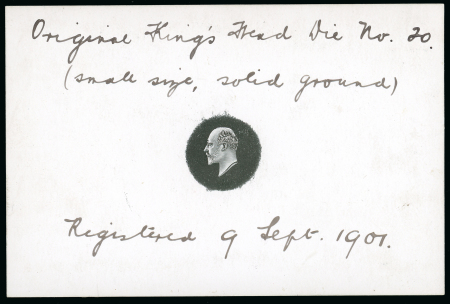 Original King's Head Die No. 20.
(small size, solid ground)
Registered 9 Sept. 1901.